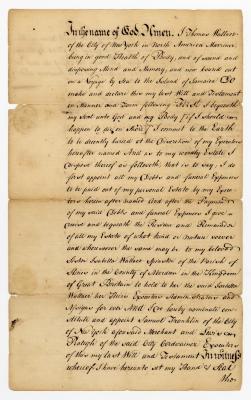 In the name of God Amen. I Thomas Wallace
of the City of New York in North America Mariner
being in good Health of Body, and of sound and
disposing Mind and Memory, and now bound out
on a Voyage by Sea to the Island of Jamaica Do
make and declare this my last Will and Testament
in Manner and Form following First I bequeath
my Soul unto God and my Body (if I should
happen to die on Shore) I commit to the Earth
to be decently buried at the Discretion of my Executors
hereafter named And as to my worldly Estate I
dispose thereof as followeth, that is to say, I do
first appoint all my Debts and funeral Expences
to be paid out of my personal Estate by my Exe-
cutors herein after named And after the Payment
of my said Debts and funeral Expences I give
devise and bequeath the Residue and Remainder
of all my Estate of what kind or nature soever
and wheresoever the same may be to my beloved
Sister Isabella Wallace Spinster of the Parish of
in the County of Aberdeen in the Kingdom
of Great Britain to hold to her the said Isabella
Wallace her Heirs Executors Administrators and
Assigns for ever And I do hereby nominate con-
stitute and appoint Samuel Franklin of the City
of New York aforesaid Merchant and
of the said City Cordwainer Executors
of this my last Will and Testament In witness
whereof I have hereunto set my Hand & Seal
the